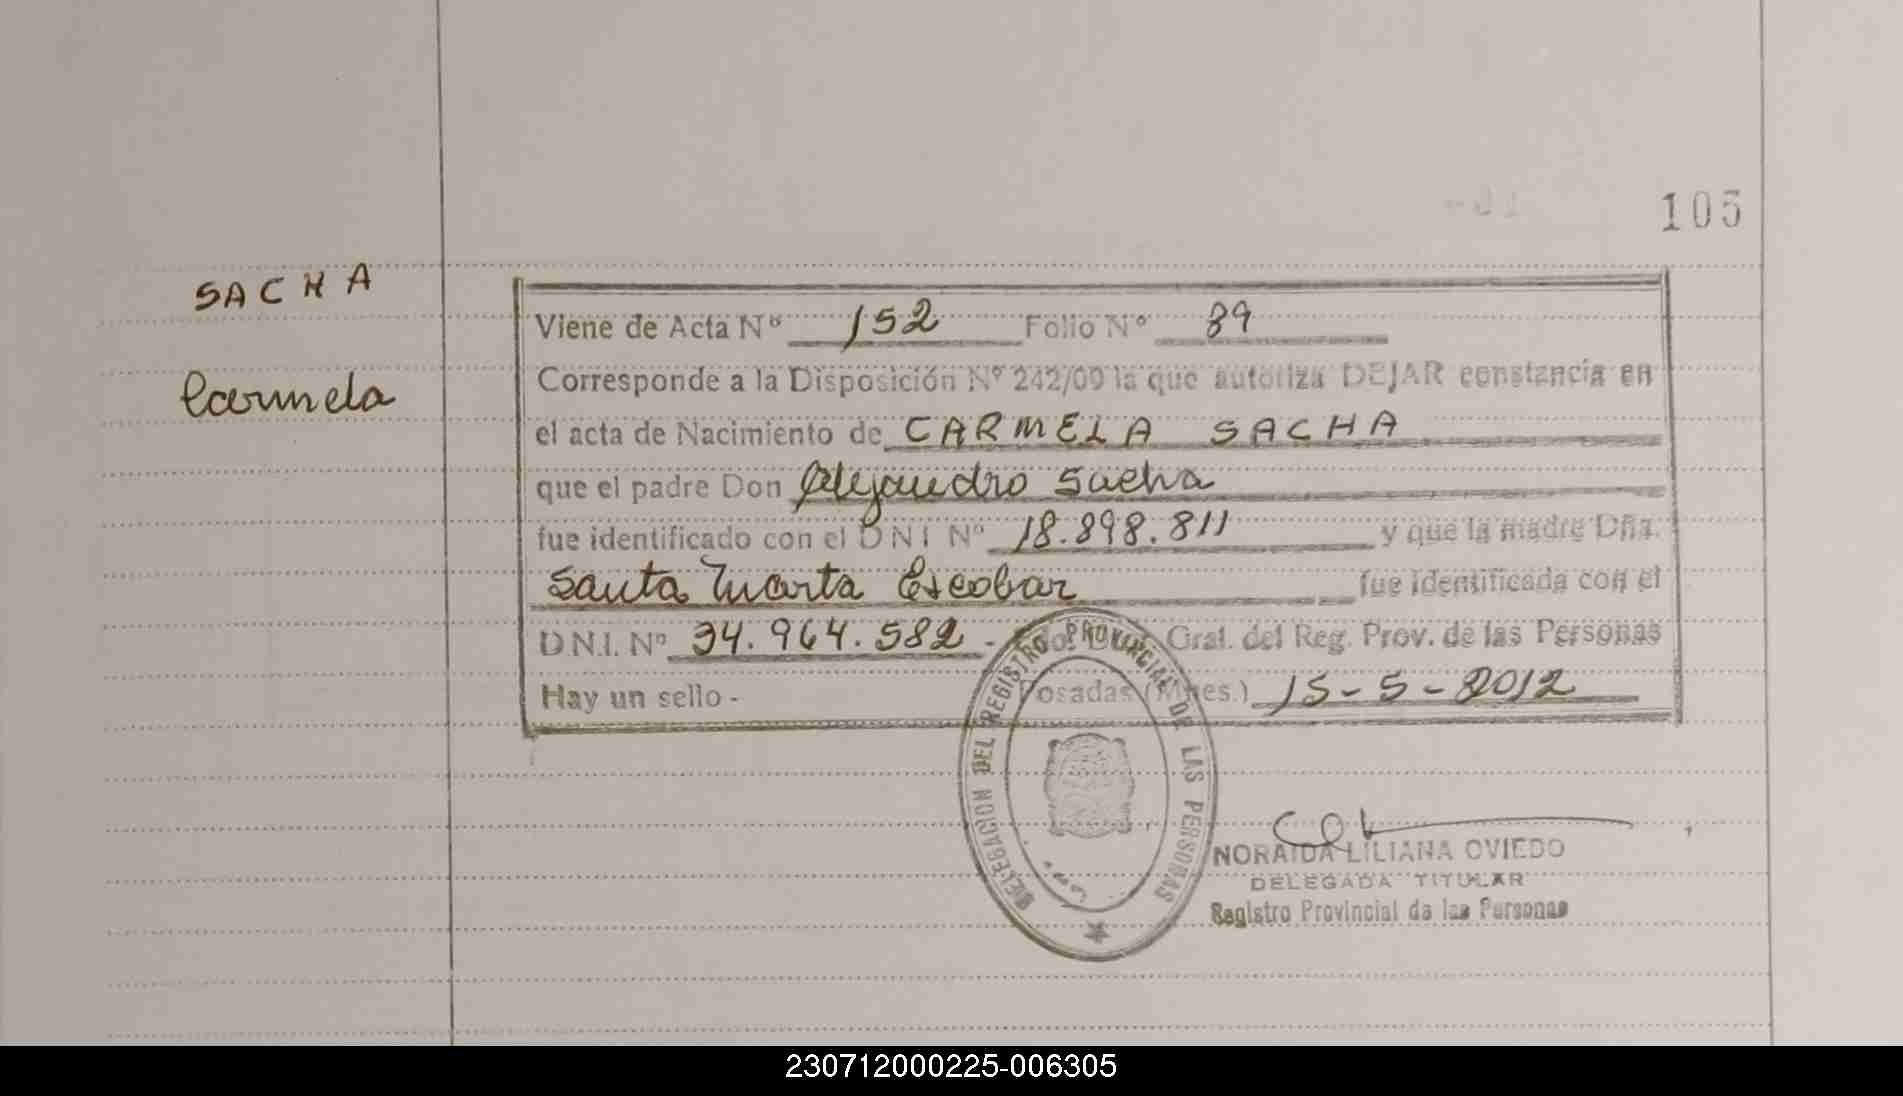 105
SACHA
Carmela
Viene de Acta Nº 152 Folio Nº 89
Corresponde a la Disposición Nº 242/00 la que autoriza DEJAR constancia en
el acta de Nacimiento de CARMELA SACHA
que el padre Don Alejandro Sacha
fue identificado con el D N I Nº 18.898.811 y que la madre Dña.
Santa Marta Escobar fue identificada con el
D.N.I. Nº 34.964.582 - Gral. del Reg. Prov. de las Personas
Hay un sello - Posadas (Mnes.) 15-5-2012
DELEGACION DEL REGISTRO PROVINCIAL DE LAS PERSONAS
NORAIDA LILIANA OVIEDO
DELEGADA TITULAR
Registro Provincial de las Personas
230712000225-006305